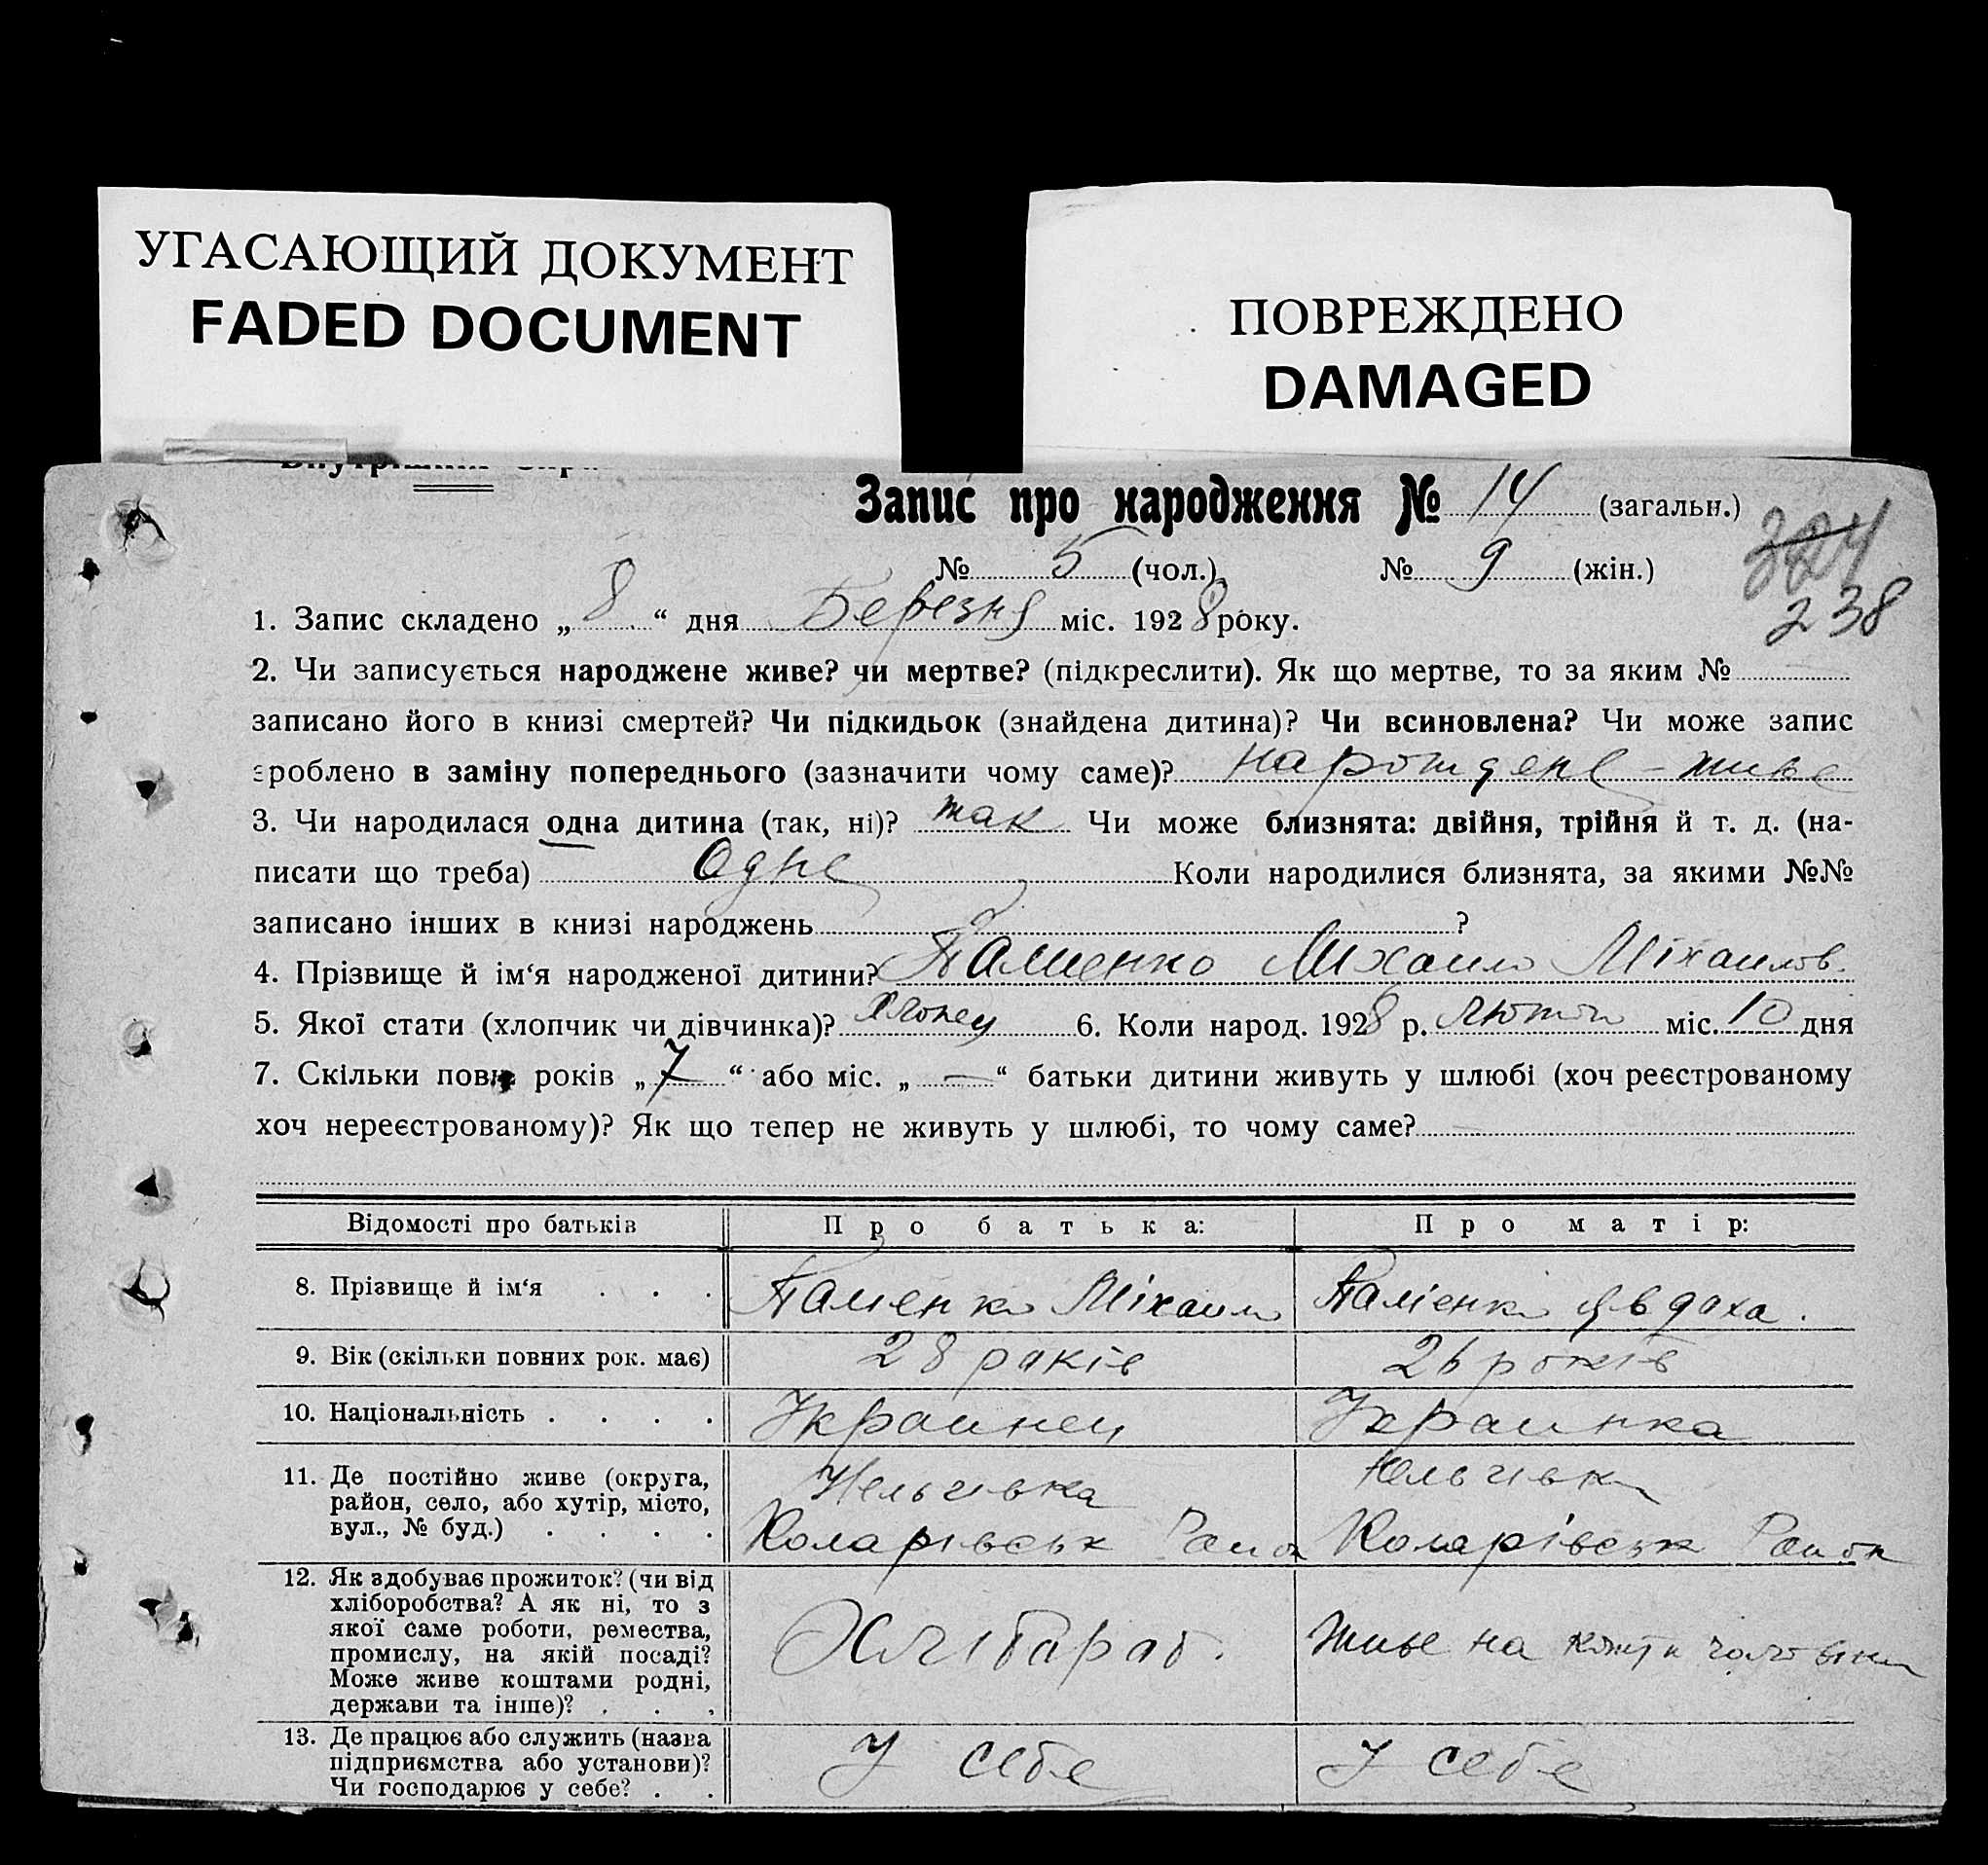 УГАСАЮЩИЙ ДОКУМЕНТ
FADED DOCUMENT
ПОВРЕЖДЕНО
DAMAGED
Запис про народження № 14 (загальн.)
324
№ 5 (чол.) № 9 (жін.)
238
1. Запис складено „ 8 “ дня Березня міс. 1928 року.
2. Чи записується народжене живе? чи мертве? (підкреслити). Як що мертве, то за яким №
записано його в книзі смертей? Чи підкидьок (знайдена дитина)? Чи всиновлена? Чи може запис
зроблено в заміну попереднього (зазначити чому саме)? нарождене - живе
3. Чи народилася одна дитина (так, ні)? так Чи може близнята: двійня, трійня й т. д. (на-
писати що треба) Одне Коли народилися близнята, за якими №№
записано інших в книзі народжень ?
4. Прізвище й ім‘я народженої дитини? Михаило Міхаилов.
5. Якої стати (хлопчик чи дівчинка)? хлопец 6. Коли народ. 1928 р. лютого міс. 10 дня
7. Скільки повн. років „ 7 “ або міс. „ — “ батьки дитини живуть у шлюбі (хоч реєстрованому
хоч нереєстрованому)? Як що тепер не живуть у шлюбі, то чому саме?
Відомості про батьків Про батька: Про матір:
8. Прізвище й ім‘я . . . Міхаило Паліенко Явдоха.
9. Вік (скільки повних рок. має) 28 раків 26 років
10. Національність . . . . Украинец Украинка
11. Де постійно живе (округа,
район, село, або хутір, місто,
вул., № буд.) . . . .
Коларівськ Район Коларівськ Район
12. Як здобуває прожиток? (чи від
хліборобства? А як ні, то з
якої саме роботи, ремества,
промислу, на якій посаді?
Може живе коштами родні,
держави та інше)? . . .
Хлібараб. Живе на
13. Де працює або служить (назва
підприємства або установи)?
Чи господарює у себе? . .
У себе У себе